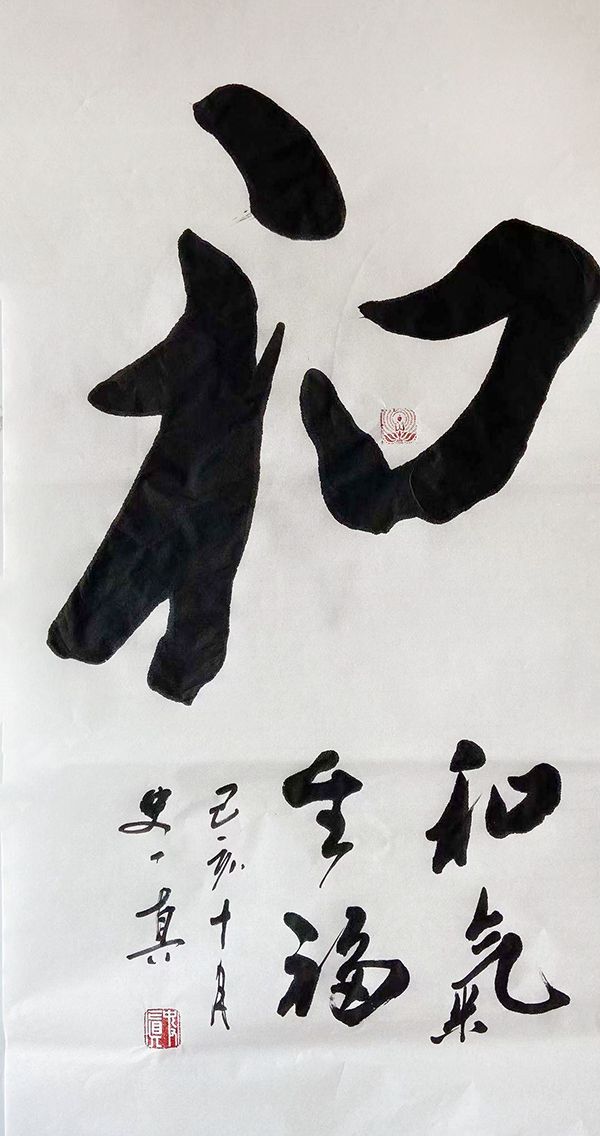 和
和氣
生福
己亥十月
史一真